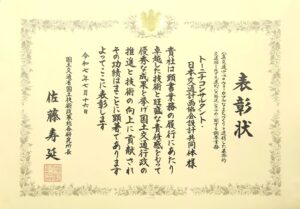 表彰状
トーニチコンサルタント・
日本交通計画協会設計共同体様
貴社は頭書業務の履行にあたり
卓越した技術と旺盛な責任感をもって
優秀な成果を挙げ国土交通行政の
推進と技術の向上に貢献され
その功績はまことに顕著であります
よってここに表彰します
令和七年七月十六日
国土交通省国土技術政策総合研究所長
佐藤寿延